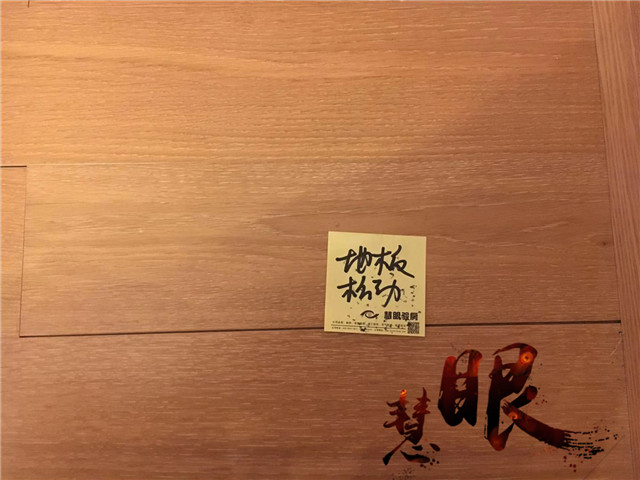 地板
松动
慧眼验房
慧眼